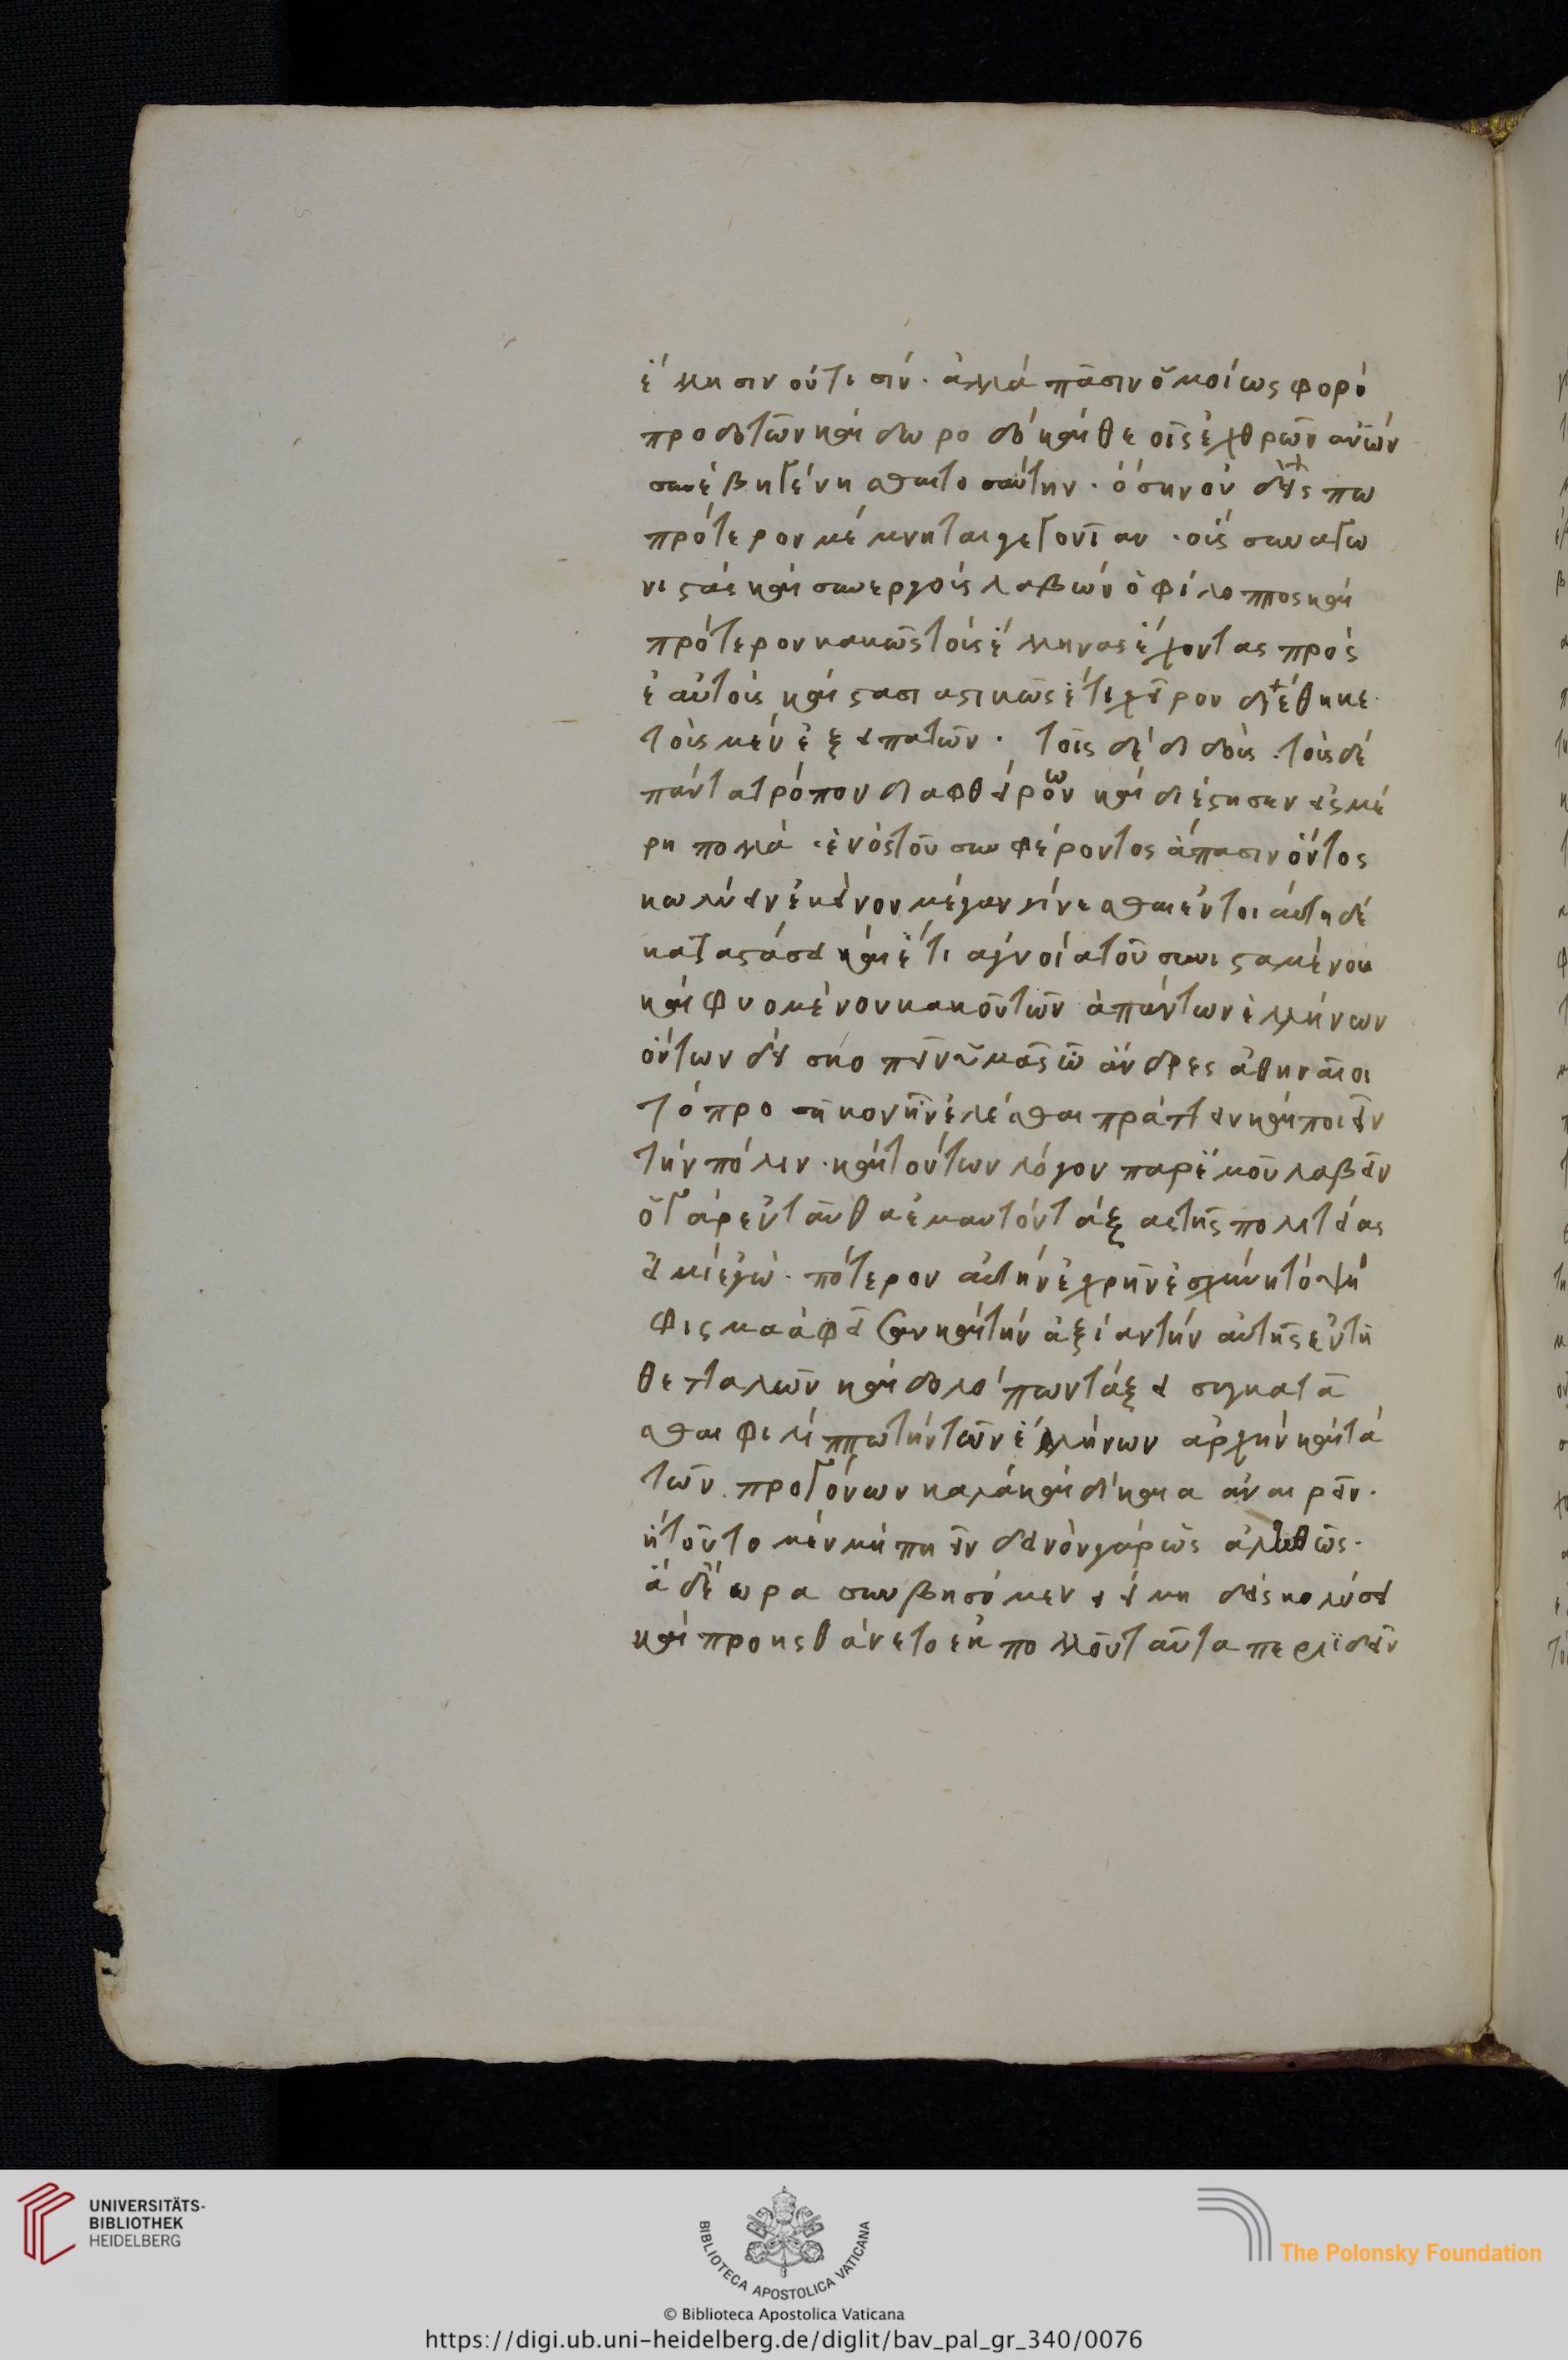 ἕλλησιν οὔ τισίν· ἀλλὰ πᾶσιν ὁμοίως φορὰ
προδοτῶν καὶ δωροδόκ καὶ θεοῖς ἐχθρῶν ἀνῶν
συνέβη γενέσθαι τοσαύτην· ὅσην οὐδείς πω
πρότερον μέμνηται γεγονῖαν · οὓς συναγω
νιστὰς καὶ συνεργοὺς λαβὼν ὁ φίλιππος καὶ
πρότερον κακῶς τοὺς ἕλληνας ἔχοντας πρὸς
ἑαυτοὺς καὶ στασιαστικῶς ἔτι χεῖρον διέθηκε·
τοὺς μὲν ἐξαπατῶν · τοῖς δὲ διδοὺς · τοὺς δὲ
πάντα τρόπον διαφθείρων καὶ διέστησεν εἰς μέ
ρη πολλὰ · ἑνὸς τοῦ συμφέροντος ἅπασιν ὄντος
κωλύειν ἐκεῖνον μέγαν γίνεσθαι ἐν τοιαύτη δὲ
καταστάσει καὶ ἔτι ἀγνοία τοῦ συνισταμένου
καὶ φυομένου κακοῦ τῶν ἁπάντων ἑλλήνων
ὄντων δεῖ σκοπεῖν ὑμᾶς ὦ ἄνδρες ἀθηναῖοι
τὸ προσῆκον ἦν ἑλέσθαι πράττειν καὶ ποιεῖν
τὴν πόλιν · καὶ τούτων λόγον παρ' ἐμοῦ λαβεῖν
ὁ γὰρ ἐνταῦθα ἑμαυτὸν τάξας τῆς πολιτείας
εἰμὶ ἐγὼ · πότερον αὐτὴν ἐχρῆν ἐσχύνη τὸ ψή
φισμα ἀφεῖσαν καὶ τὴν ἀξίαν τὴν αὐτῆς ἐν τῆ
θετταλῶν καὶ δολόπων τάξει συγκατᾶ
σθαι φιλίππω τὴν τῶν ἑλλήνων ἀρχὴν καὶ τὰ
τῶν προγόνων καλὰ καὶ δίκαια ἀναιρεῖν ·
ἢ τοῦτο μὲν μὴ ποιεῖν δεινὸν γὰρ ὡς ἀληθῶς ·
ἃ δὲ ἑώρα συμβησόμενα εἰ μη δεὶς κωλύσει
καὶ προησθάνετο ἐκ πολλοῦ ταῦτα περιϊδεῖν
UNIVERSITÄTS-
BIBLIOTHEK
HEIDELBERG
BIBLIOTECA APOSTOLICA VATICANA
The Polonsky Foundation
© Biblioteca Apostolica Vaticana
https://digi.ub.uni-heidelberg.de/diglit/bav_pal_gr_340/0076